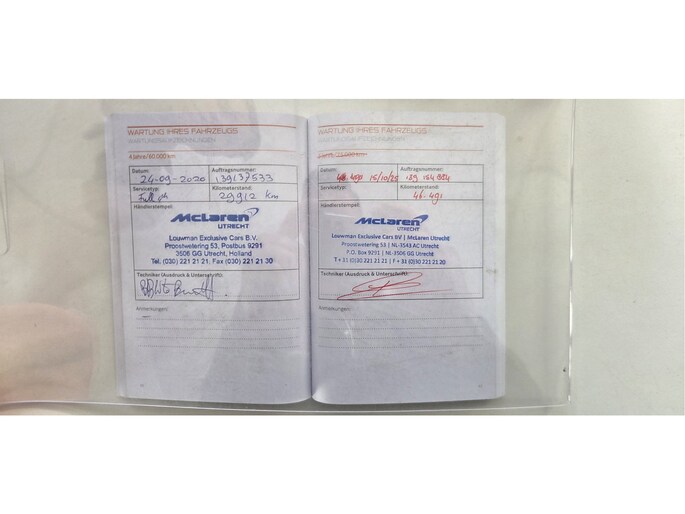 WARTUNG IHRES FAHRZEUGS
WARTUNGSAUFZEICHNUNGEN
4 Jahre/60.000 km
Datum: Auftragsnummer:
24-09-2020 139137533
Servicetyp: Kilometerstand:
Full 29912 km
Händlerstempel:
McLaren
UTRECHT
Louwman Exclusive Cars B.V.
Proostwetering 53, Postbus 9291
3506 GG Utrecht, Holland
Tel. (030) 221 21 21, Fax (030) 221 21 30
Techniker (Ausdruck & Unterschrift):
Anmerkungen:
WARTUNG IHRES FAHRZEUGS
WARTUNGSAUFZEICHNUNGEN
Datum: Auftragsnummer:
15/10/25
Servicetyp: Kilometerstand:
46.491
Händlerstempel:
McLaren
UTRECHT
Louwman Exclusive Cars BV | McLaren Utrecht
Proostwetering 53 | NL-3543 AC Utrecht
P.O. Box 9291 | NL-3506 GG Utrecht
T + 31 (0)30 221 21 21 | F + 31 (0)30 221 21 20
Techniker (Ausdruck & Unterschrift):
Anmerkungen: